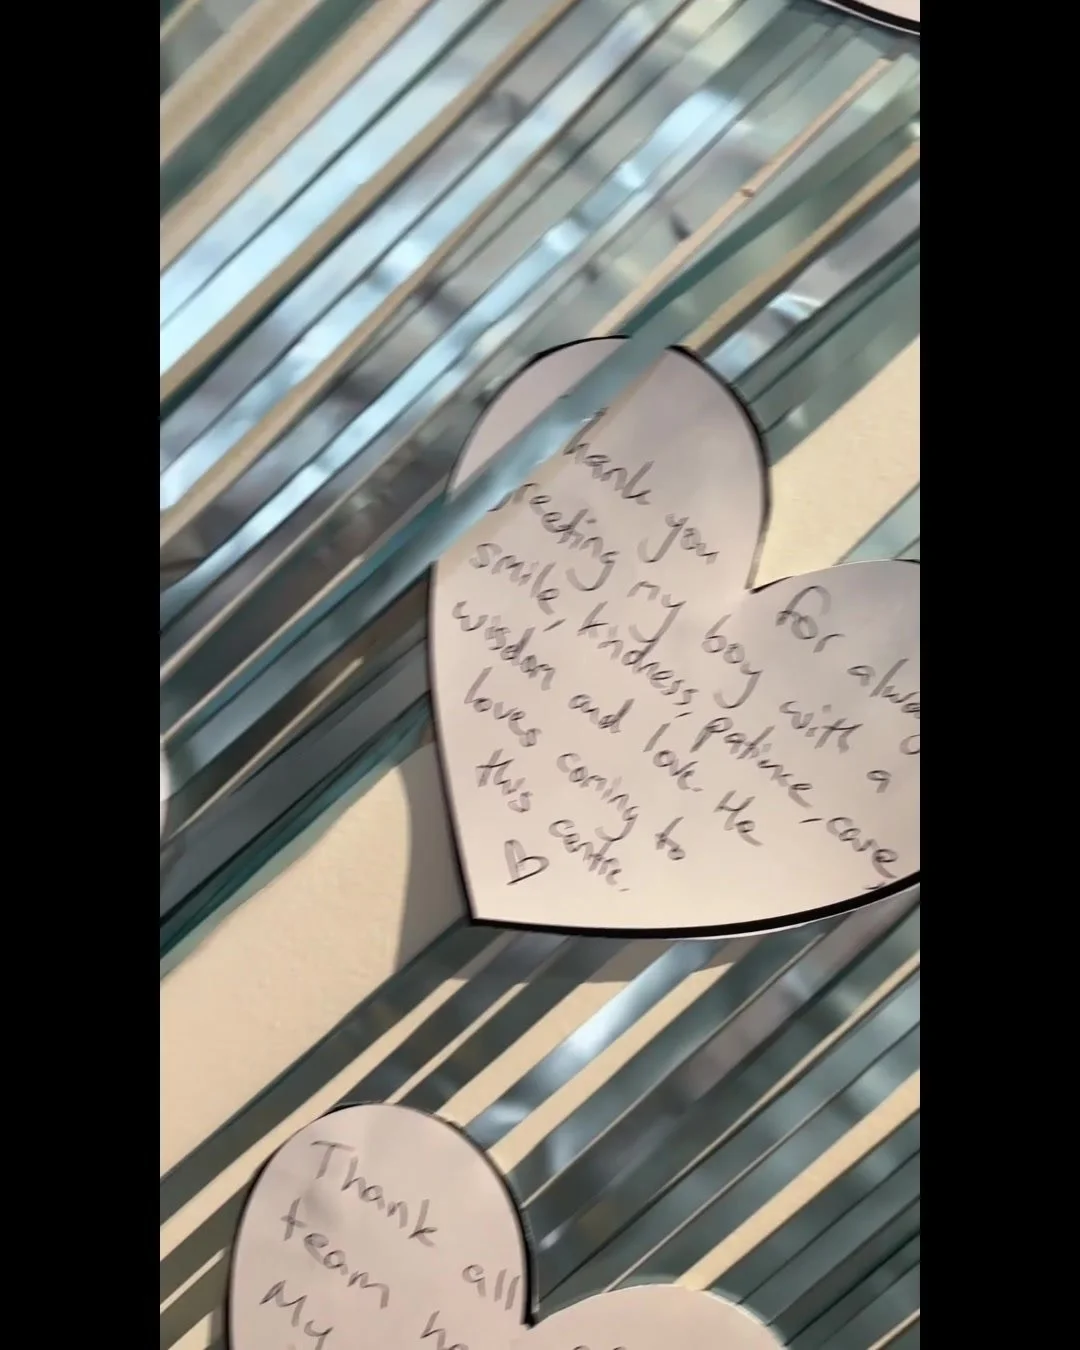 Thank you for always
greeting my boy with a
smile, kindness, patience, care,
wisdom and love. He
loves coming to
this centre.
Thank all
team
My